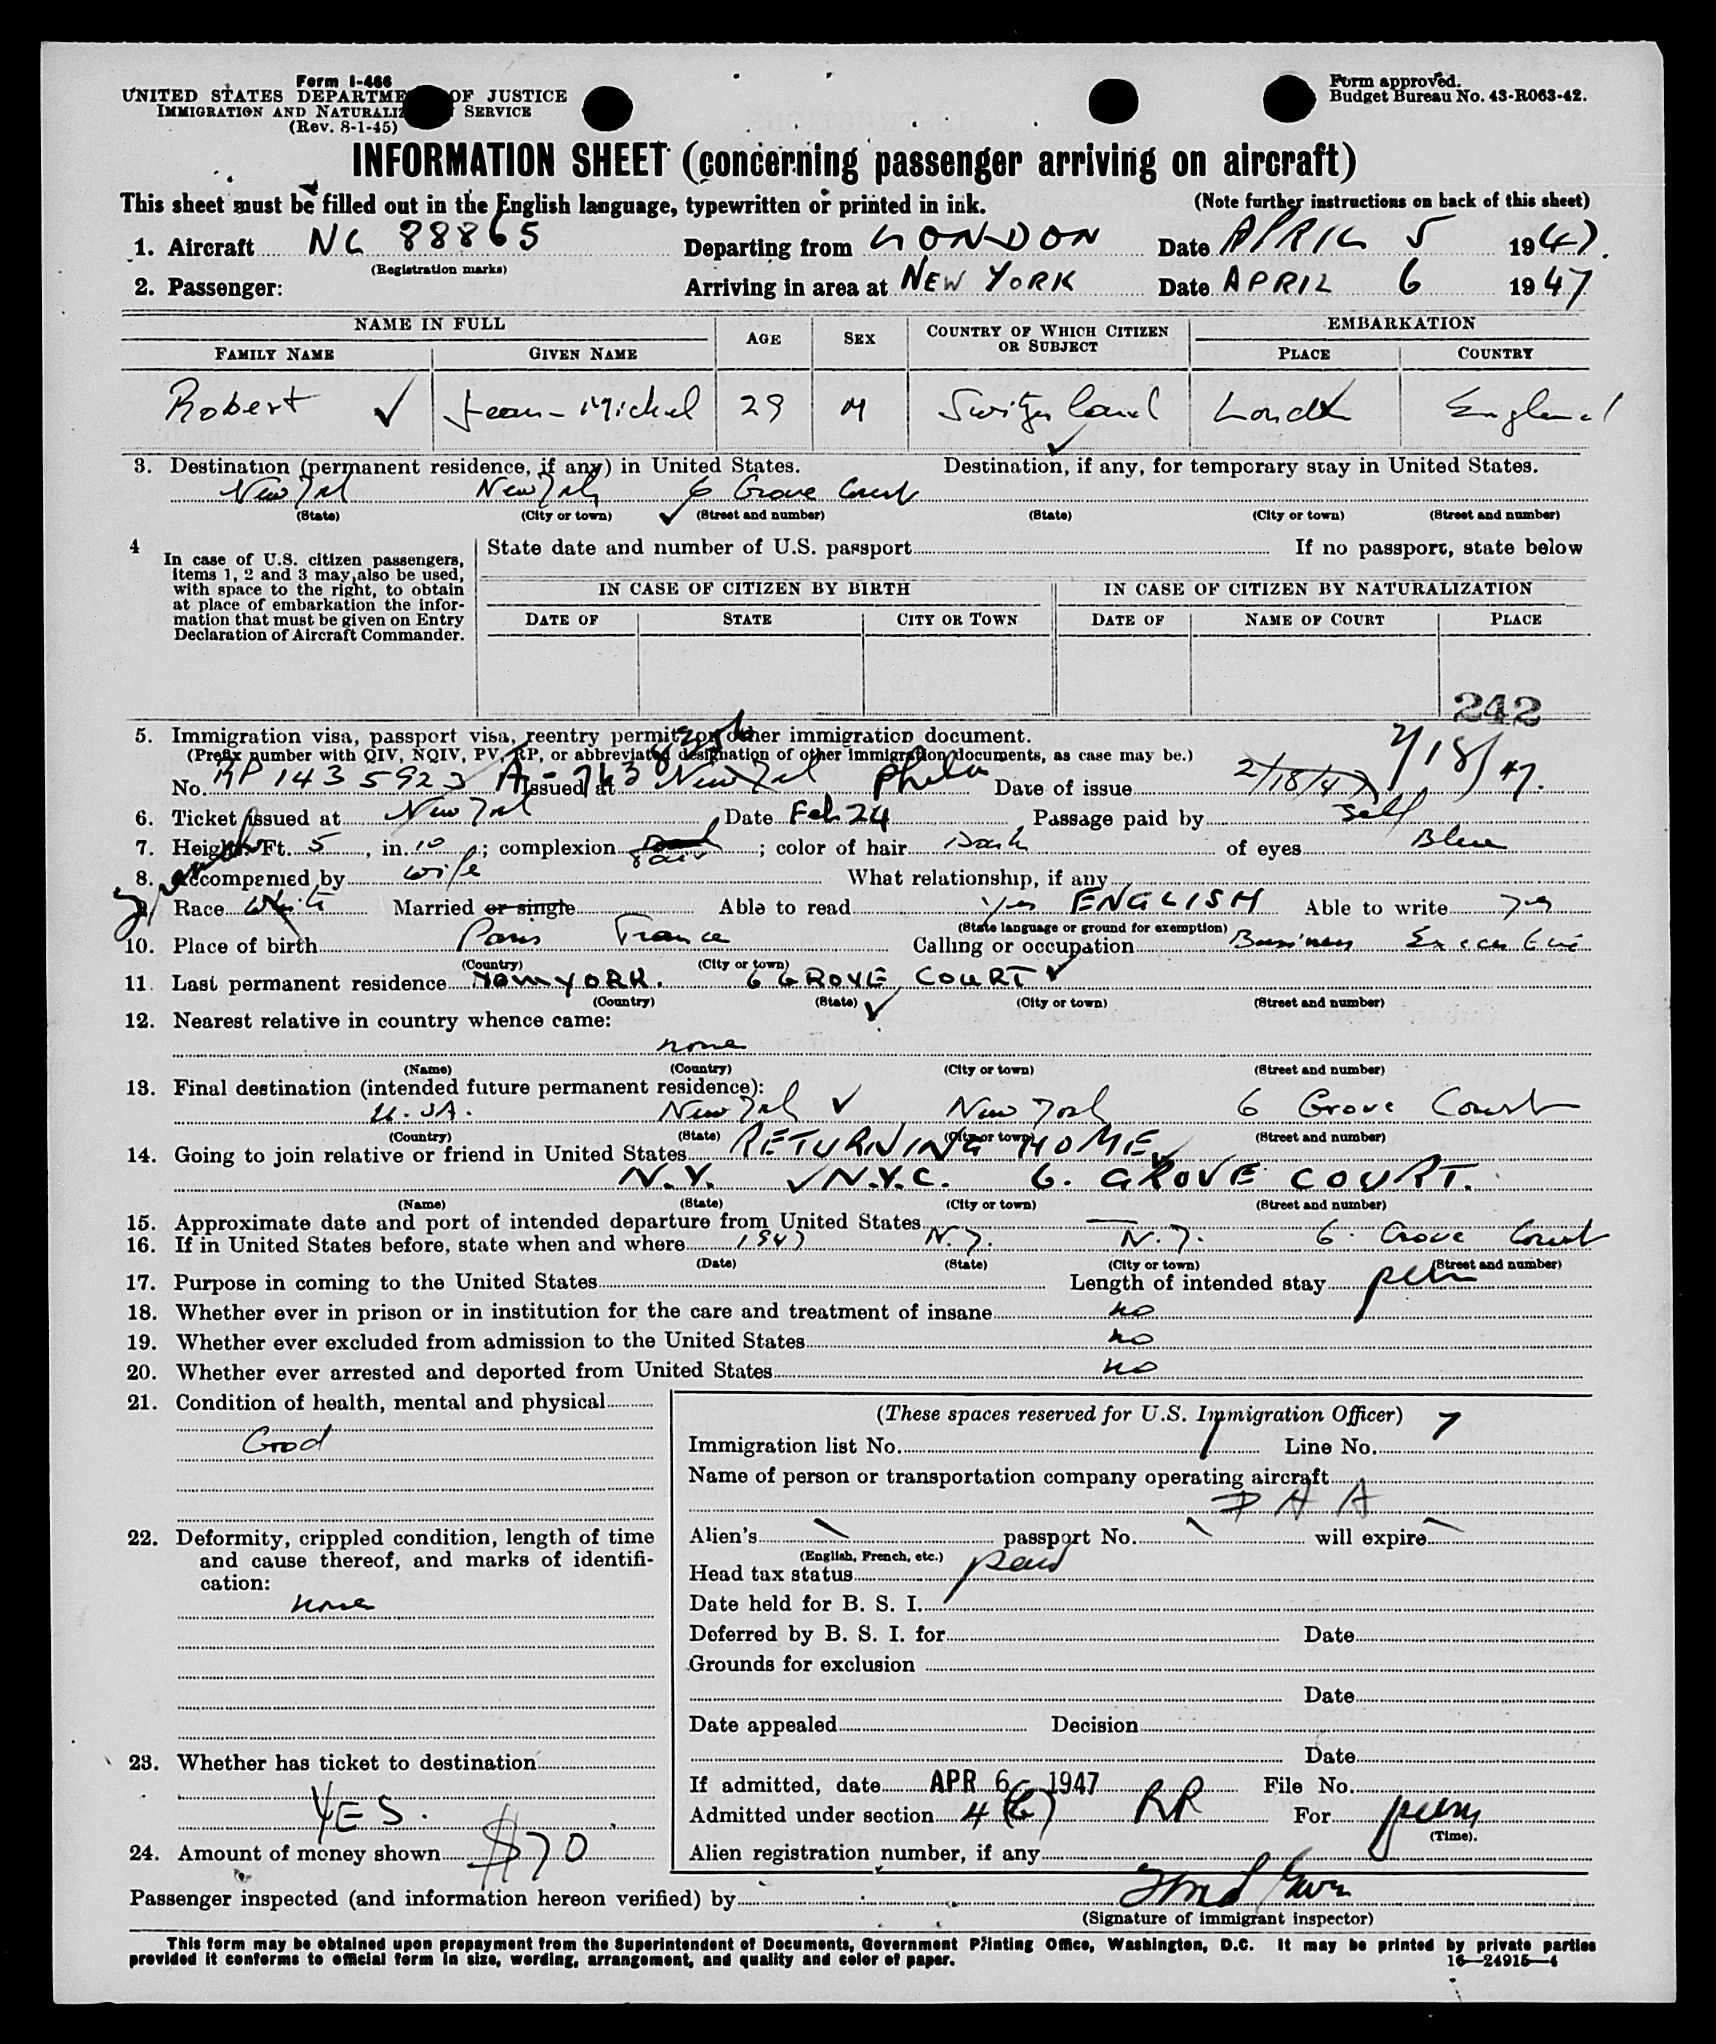 Form I-466
UNITED STATES DEPARTMENT OF JUSTICE
IMMIGRATION AND NATURALIZATION SERVICE
(Rev. 8-1-45)
Form approved.
Budget Bureau No. 43-R063-42.
INFORMATION SHEET (concerning passenger arriving on aircraft)
This sheet must be filled out in the English language, typewritten or printed in ink. (Note further instructions on back of this sheet)
1. Aircraft NC 88865 Departing from LONDON Date APRIL 5 1947.
(Registration marks)
2. Passenger: Arriving in area at NEW YORK Date APRIL 6 1947
NAME IN FULL AGE SEX COUNTRY OF WHICH CITIZEN OR SUBJECT EMBARKATION
FAMILY NAME GIVEN NAME PLACE COUNTRY
Robert ✓ Jean-Michel 29 M Switzerland London England
3. Destination (permanent residence, if any) in United States. Destination, if any, for temporary stay in United States.
New York New York 6 Grove Court
(State) (City or town) (Street and number) (State) (City or town) (Street and number)
4 In case of U.S. citizen passengers, items 1, 2 and 3 may also be used, with space to the right, to obtain at place of embarkation the information that must be given on Entry Declaration of Aircraft Commander.
State date and number of U.S. passport If no passport, state below
IN CASE OF CITIZEN BY BIRTH IN CASE OF CITIZEN BY NATURALIZATION
DATE OF STATE CITY OR TOWN DATE OF NAME OF COURT PLACE
242
5. Immigration visa, passport visa, reentry permit, or other immigration document.
(Prefix number with QIV, NQIV, PV, RP, or abbreviated designation of other immigration documents, as case may be.)
No. RP 1435923 Issued at New York Phila Date of issue 2/18/47 2/18/47.
6. Ticket issued at New York Date Feb 24 Passage paid by self
7. Height: Ft. 5, in. 10; complexion Dark fair; color of hair Dark of eyes Blue
8. Accompanied by wife What relationship, if any
9. Race White Married or single Able to read yes ENGLISH Able to write yes
(State language or ground for exemption)
10. Place of birth Paris France Calling or occupation Business Executive
(Country) (City or town)
11. Last permanent residence NEW YORK. 6 GROVE COURT ✓
(Country) (State) (City or town) (Street and number)
12. Nearest relative in country whence came:
none
(Name) (Country) (City or town) (Street and number)
13. Final destination (intended future permanent residence):
U.SA. New York ✓ New York 6 Grove Court
(Country) (State) (City or town) (Street and number)
14. Going to join relative or friend in United States RETURNING HOME
N.Y. ✓ N.Y.C. 6. GROVE COURT.
(Name) (State) (City or town) (Street and number)
15. Approximate date and port of intended departure from United States —
16. If in United States before, state when and where 1947 N.Y. N.Y. 6. Grove Court
(Date) (State) (City or town) (Street and number)
17. Purpose in coming to the United States Length of intended stay perm
18. Whether ever in prison or in institution for the care and treatment of insane no
19. Whether ever excluded from admission to the United States no
20. Whether ever arrested and deported from United States no
21. Condition of health, mental and physical
Good
22. Deformity, crippled condition, length of time and cause thereof, and marks of identification:
none
23. Whether has ticket to destination
YES.
24. Amount of money shown $70
(These spaces reserved for U.S. Immigration Officer)
Immigration list No. 1 Line No. 7
Name of person or transportation company operating aircraft
PAA
Alien's passport No. will expire
(English, French, etc.)
Head tax status paid
Date held for B. S. I.
Deferred by B. S. I. for Date
Grounds for exclusion
Date
Date appealed Decision
Date
If admitted, date APR 6 - 1947 File No.
Admitted under section 4 (b) RR For perm
(Time).
Alien registration number, if any
Passenger inspected (and information hereon verified) by
(Signature of immigrant inspector)
This form may be obtained upon prepayment from the Superintendent of Documents, Government Printing Office, Washington, D.C. It may be printed by private parties
provided it conforms to official form in size, wording, arrangement, and quality and color of paper.
16—24915—4